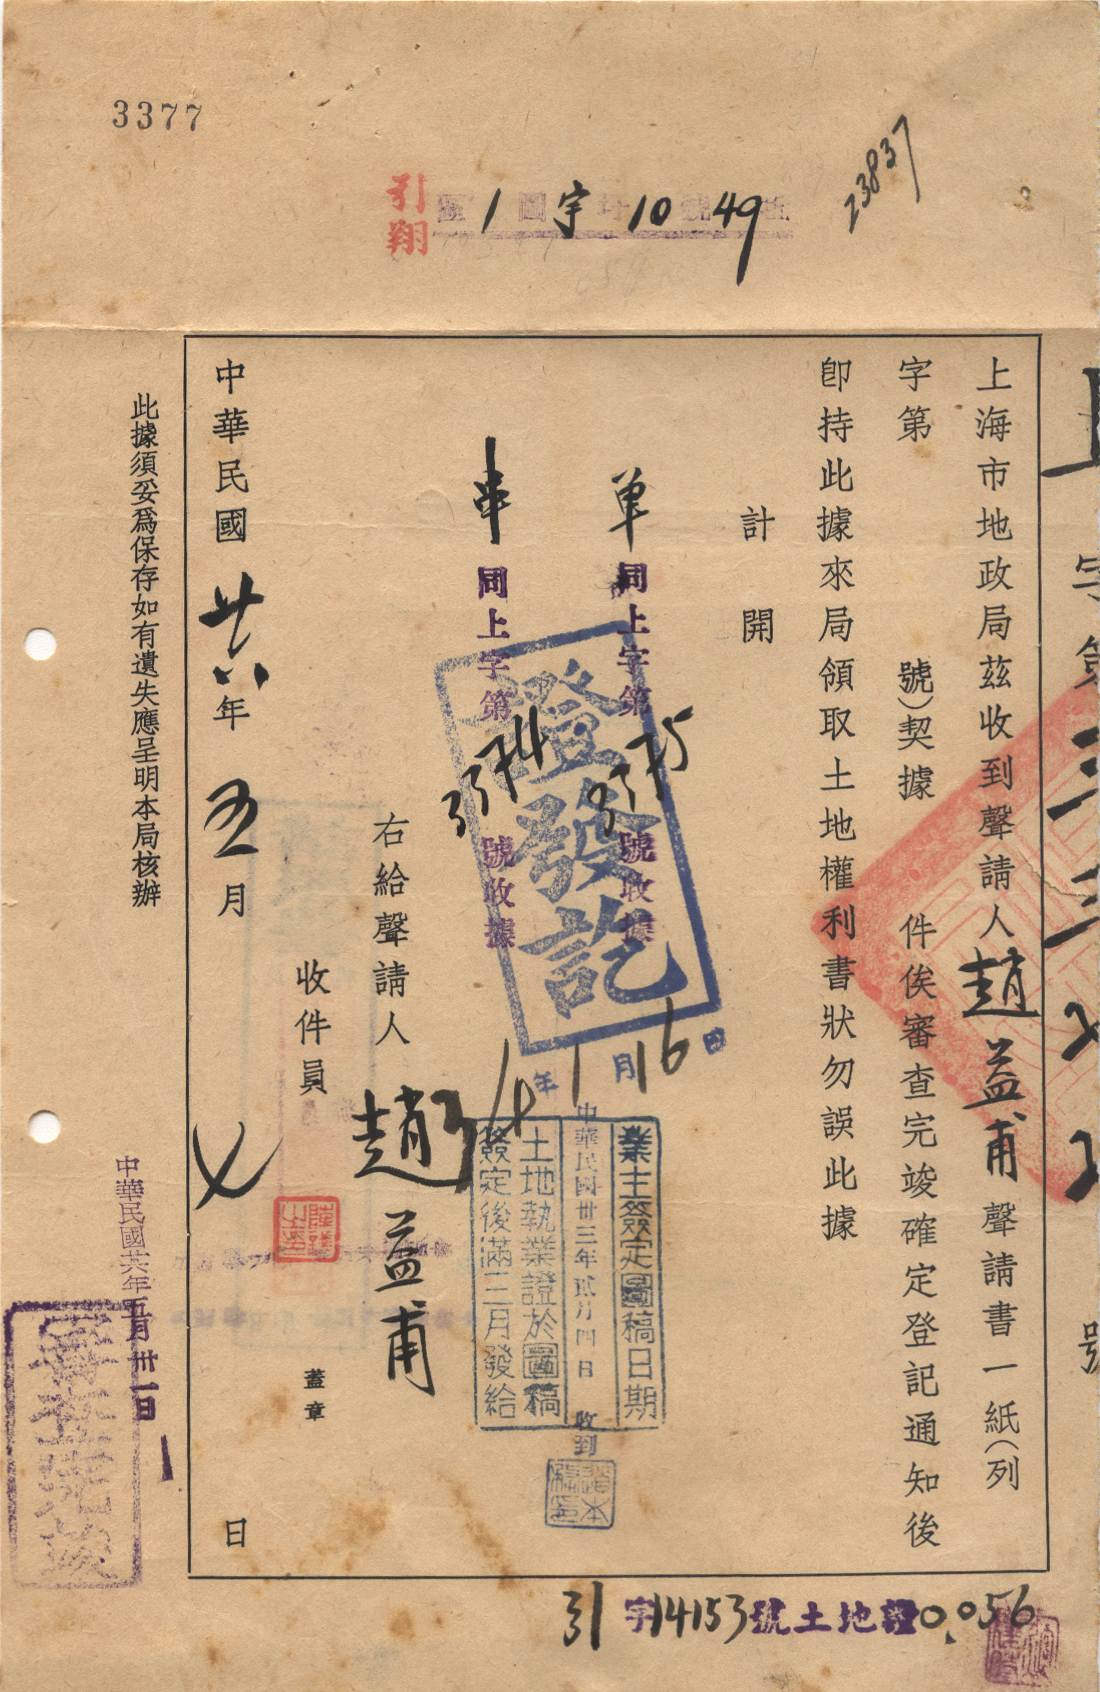 3377
23837
引翔區1圖字圩10號49坵
上海市地政局茲收到聲請人趙益甫聲請書一紙(列
字第 號)契據 件俟審查完竣確定登記通知後
卽持此據來局領取土地權利書狀勿誤此據
計開
單同上字第3375號收據
串同上字第3374號收據
證發訖
34年1月16日
業主簽定圖稿日期
中華民國卅三年貳月四日 收到
土地執業證於圖稿
簽定後滿三月發給
右給聲請人趙益甫
收件員
蓋章
中華民國廿八年五月 日
此據須妥爲保存如有遺失應呈明本局核辦
中華民國廿六年五月卅一日
審查完竣
引字14153號土地證0.056